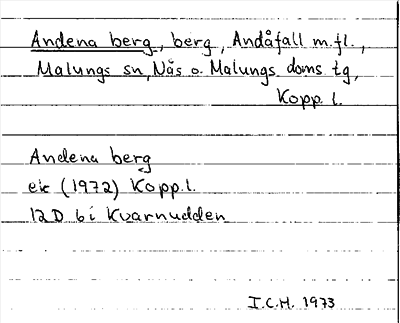 Andena berg, berg, Andåfall m.fl.,
Malungs sn, Näs o. Malungs doms. tg,
Kopp. l.
Andena berg
ek (1972) Kopp. l.
12D 6i Kvarnudden
I.C.H. 1973